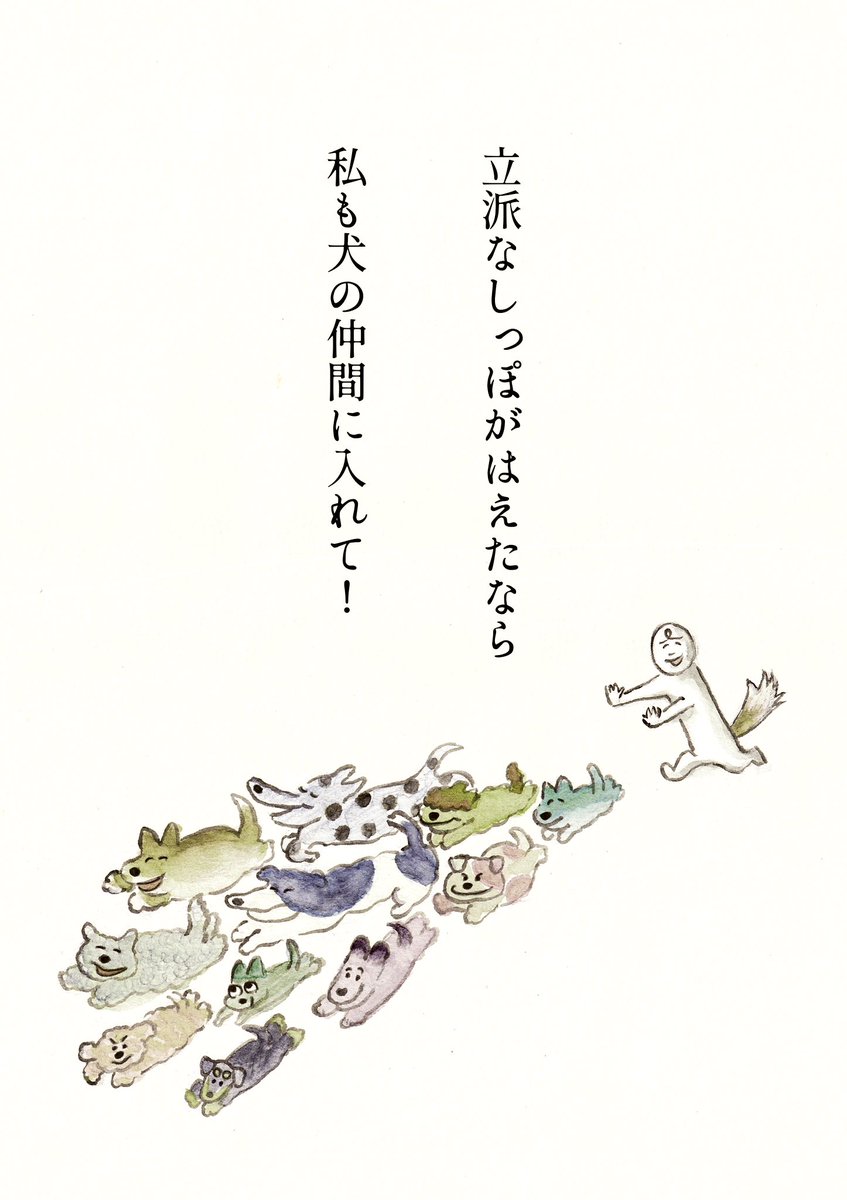 立派なしっぽがはえたなら
私も犬の仲間に入れて！